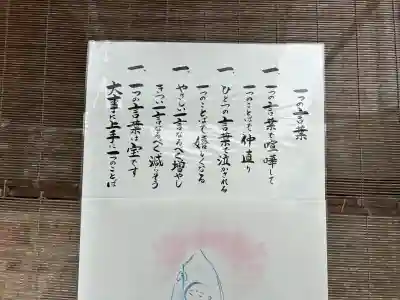 一つの言葉
一、一つの言葉で喧嘩して
一つのことばで仲直り
一、ひとつの言葉で泣かされる
一つのことばで嬉しくなる
一、やさしい言なるべく増やし
きつい言なるべく減らそう
一、一つの言葉は宝です
大事に上手に一つのことば